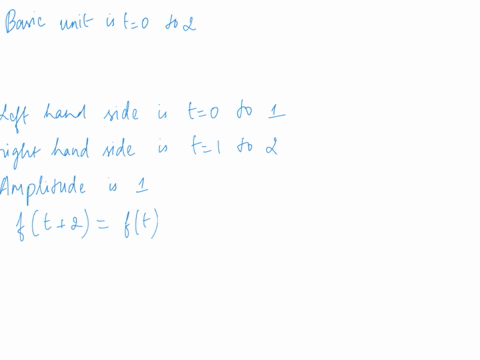 Basic unit is t=0 to 2
Left hand side is t=0 to 1
right hand side is t=1 to 2
Amplitude is 1
f(t+2) = f(t)